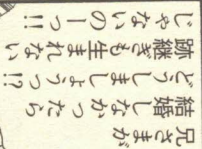 兄さまが
結婚しなかったら
どうしましょうっ!?
跡継ぎも生まれない
じゃないのーっ!!